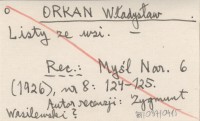 ORKAN Władysław
Listy ze wsi. —
Rec.: Myśl Nar. 6
(1926), nr 8: 124-125.
Autor recenzji: Zygmunt
Wasilewski?